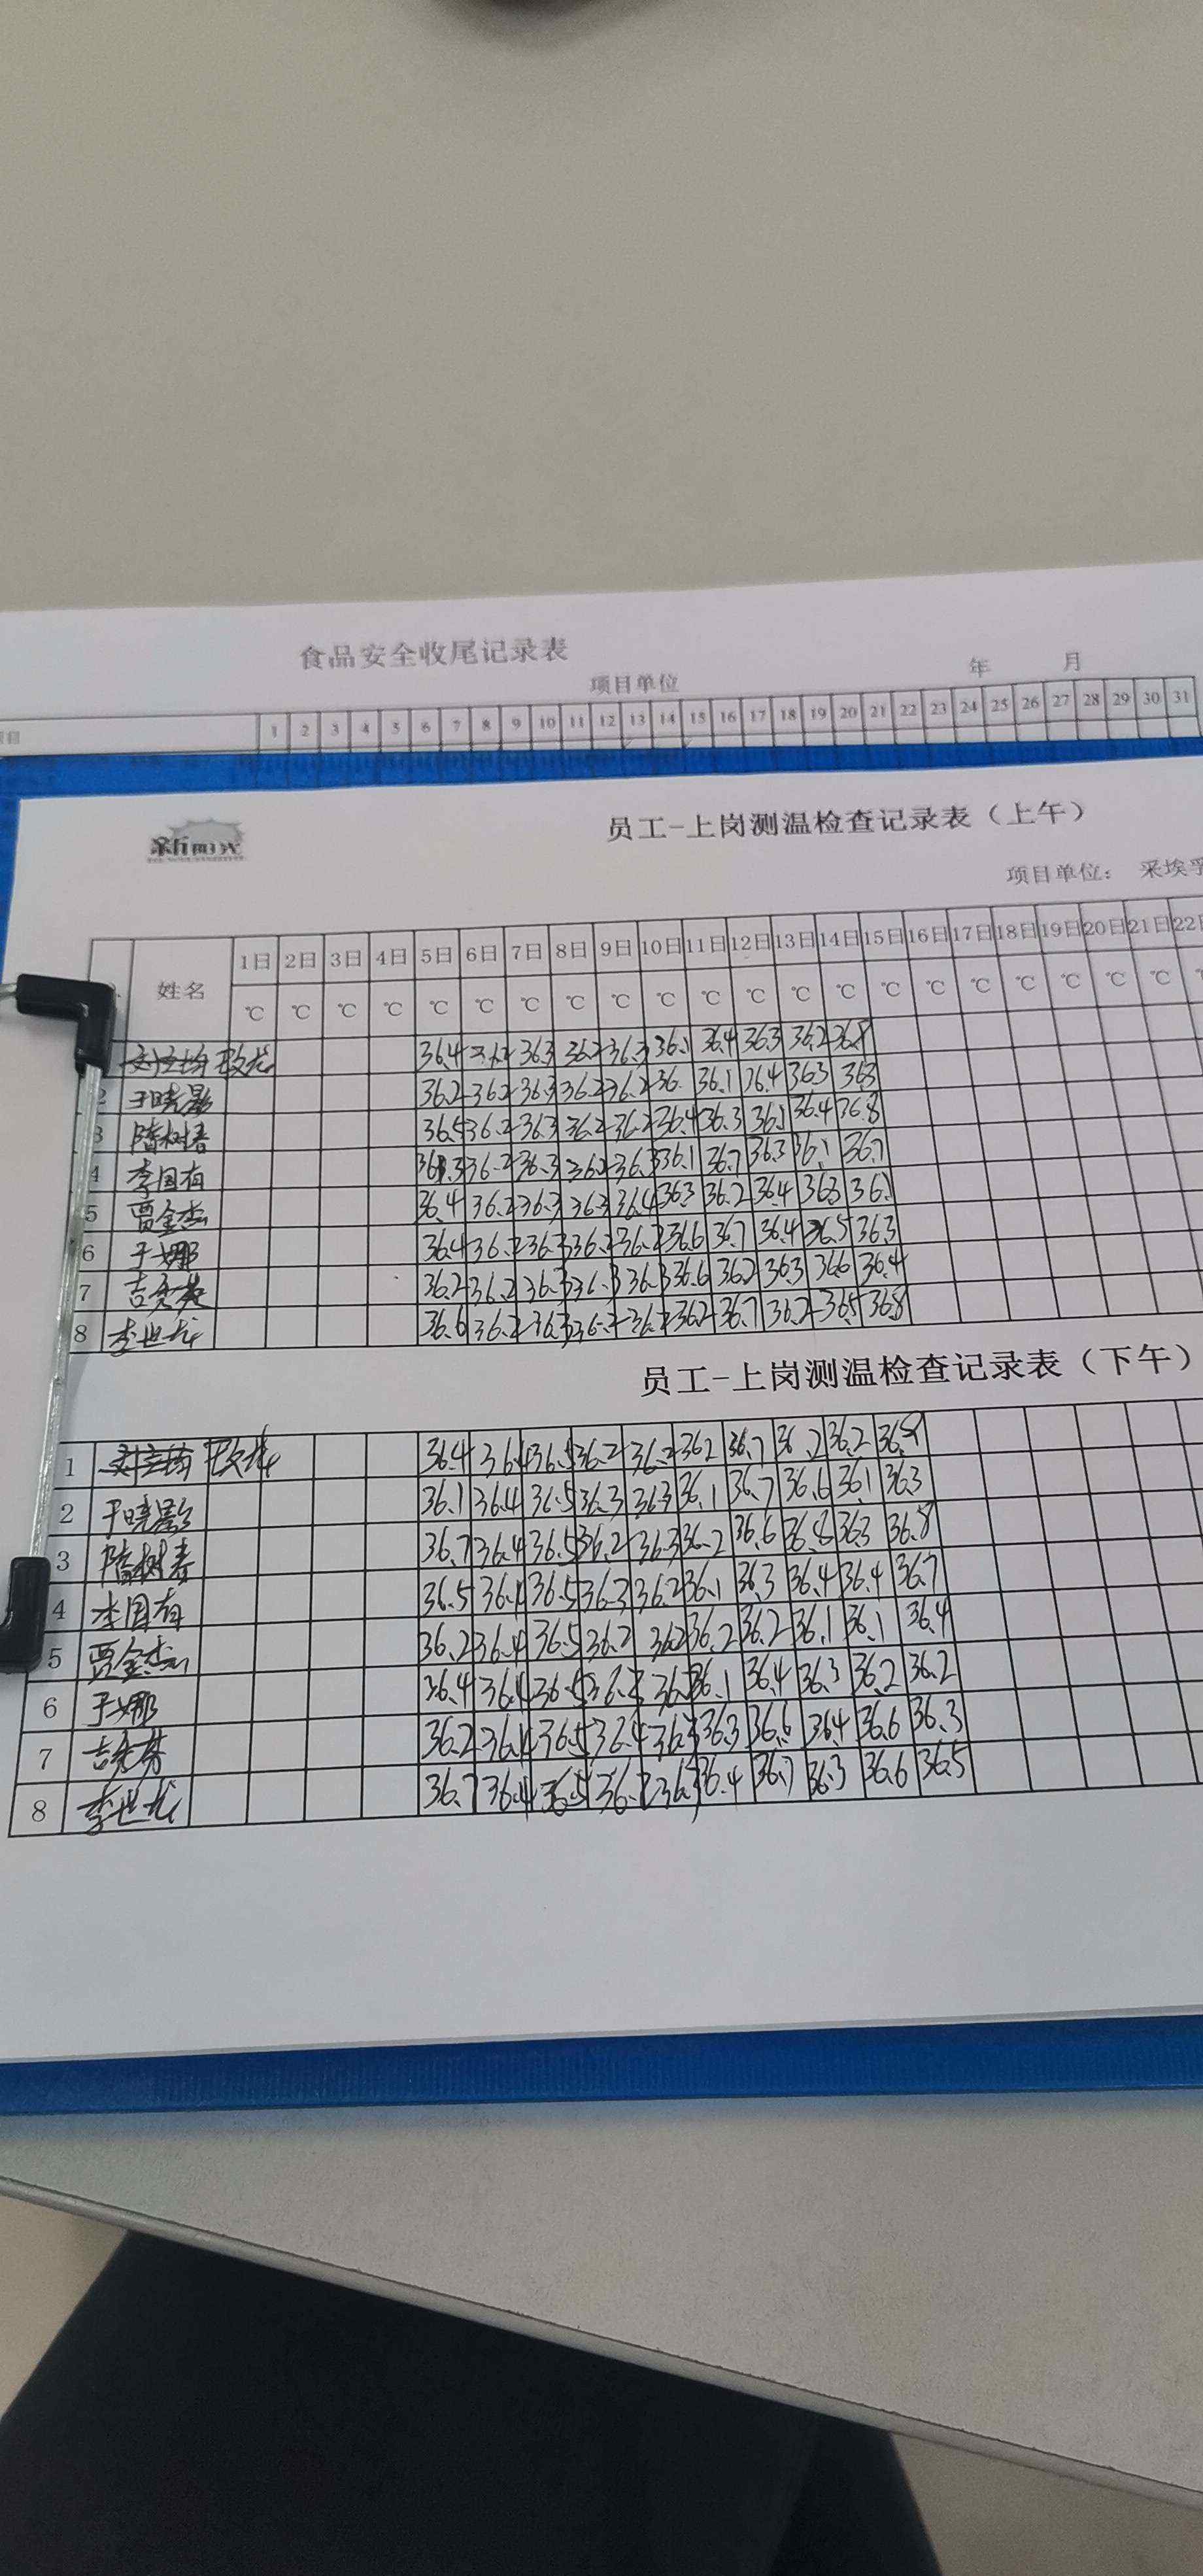 食品安全收尾记录表
项目单位 年 月
项目 1 2 3 4 5 6 7 8 9 10 11 12 13 14 15 16 17 18 19 20 21 22 23 24 25 26 27 28 29 30 31
新阳光
员工-上岗测温检查记录表（上午）
项目单位： 采埃孚
姓名 1日 2日 3日 4日 5日 6日 7日 8日 9日 10日 11日 12日 13日 14日 15日 16日 17日 18日 19日 20日 21日 22日
℃ ℃ ℃ ℃ ℃ ℃ ℃ ℃ ℃ ℃ ℃ ℃ ℃ ℃ ℃ ℃ ℃ ℃ ℃ ℃ ℃
36.4 36.3 36.2 36.3 36.1 36.4 36.3 36.2 36.8
2 于晓影 36.2 36.2 36.3 36.2 36.2 36. 36.1 36.4 36.3 36.3
3 隋树春 36.5 36.2 36.3 36.2 36.2 36.4 36.3 36.1 36.4 36.8
4 李国有 36.3 36.2 36.3 36.2 36.3 36.1 36.7 36.3 36.1 36.7
5 贾金杰 36.4 36.2 36.3 36.3 36.4 36.3 36.2 36.4 36.3
6 于娜 36.4 36.2 36.3 36.2 36.2 36.6 36.7 36.4 36.5 36.3
7 36.2 36.2 36.3 36.3 36.3 36.6 36.2 36.3 36.6 36.4
8 李世龙 36.6 36.2 36.3 36.2 36.2 36.2 36.7 36.2 36.5 36.8
员工-上岗测温检查记录表（下午）
1 36.4 36.4 36.5 36.2 36.2 36.2 36.7 36.2 36.2 36.8
2 于晓影 36.1 36.4 36.5 36.3 36.3 36.1 36.7 36.6 36.1 36.3
3 隋树春 36.7 36.4 36.5 36.2 36.3 36.2 36.6 36.8 36.3 36.8
4 李国有 36.5 36.4 36.5 36.3 36.2 36.1 36.3 36.4 36.4 36.7
5 贾金杰 36.2 36.4 36.5 36.2 36.2 36.2 36.2 36.1 36.1 36.4
6 于娜 36.4 36.4 36.5 36.1 36.4 36.3 36.2 36.2
7 36.2 36.4 36.5 36.4 36.3 36.3 36.6 36.4 36.6 36.3
8 李世龙 36.7 36.4 36.5 36.3 36.4 36.7 36.3 36.6 36.5